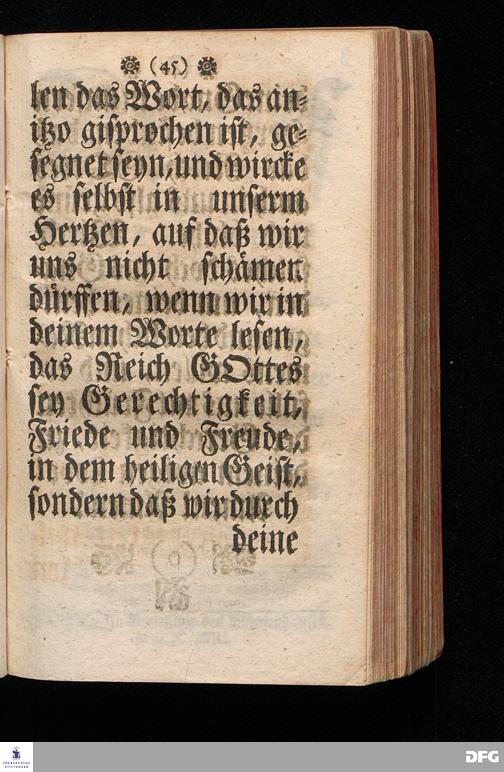 (45)
len das Wort, das an⸗
itzo gisprochen ist, ge⸗
segnet seyn, und wircke
es selbst in unserm
Hertzen, auf daß wir
uns nicht schämen
dürffen, wenn wir in
deinem Worte lesen,
das Reich GOttes
sey Gerechtigkeit,
Friede und Freude,
in dem heiligen Geist,
sondern daß wir durch
deine
FRANCKESCHE
STIFTUNGEN
DFG